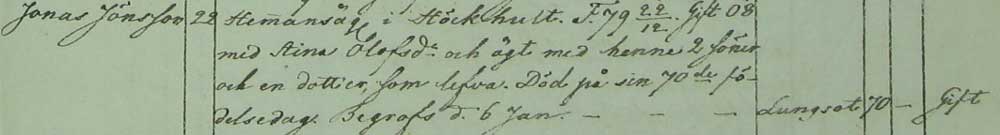 Jonas Jönsson 22 Hemansäg. i Stöckhult. F. 79 22/12. Gift 08
med Stina Olofsdr och ägt med henne 2 söner
och en dotter, som lefva. Död på sin 70de fö-
delsedag. Begrofs d. 6 Jan. — — — Lungsot 70 — Gift